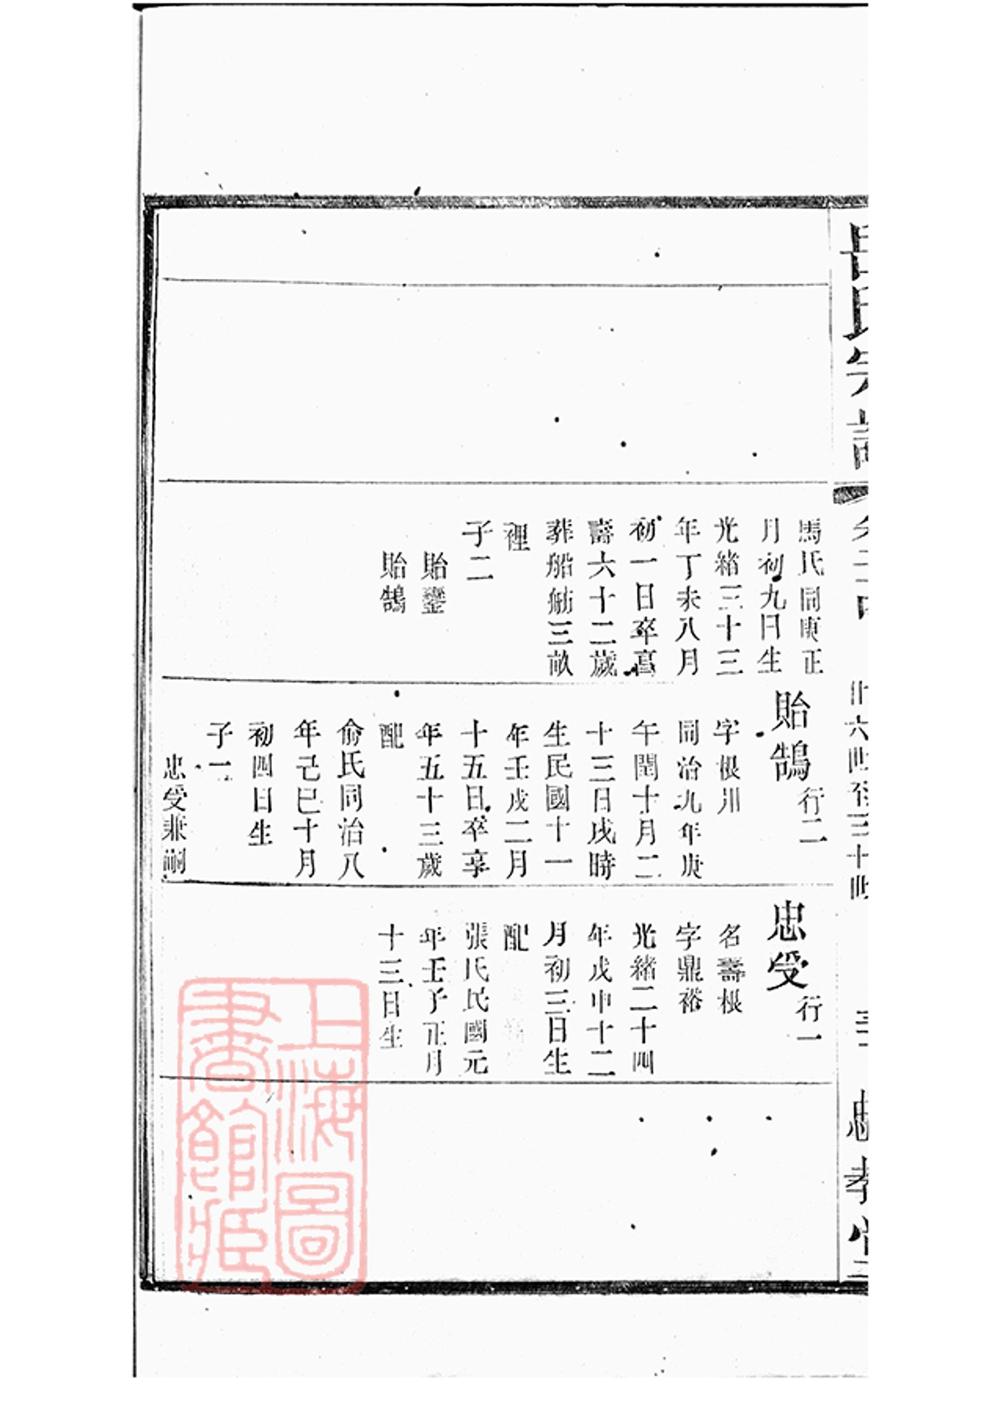 氏宗譜
馬氏同庚正
月初九日生
光緒三十三
年丁未八月
初一日卒享
壽六十二歲
葬船舫三畝
裡
子二
貽鑾
貽鵠
貽鵠行二
字根川
同治九年庚
午閏十月二
十三日戌時
生民國十一
年壬戌二月
十五日卒享
年五十三歲
配
俞氏同治八
年己巳十月
初四日生
子一
忠受兼嗣
忠受行一
名壽根
字鼎裕
光緒二十四
年戊申十二
月初三日生
配
張氏民國元
年壬子正月
十三日生
上海圖
書館藏